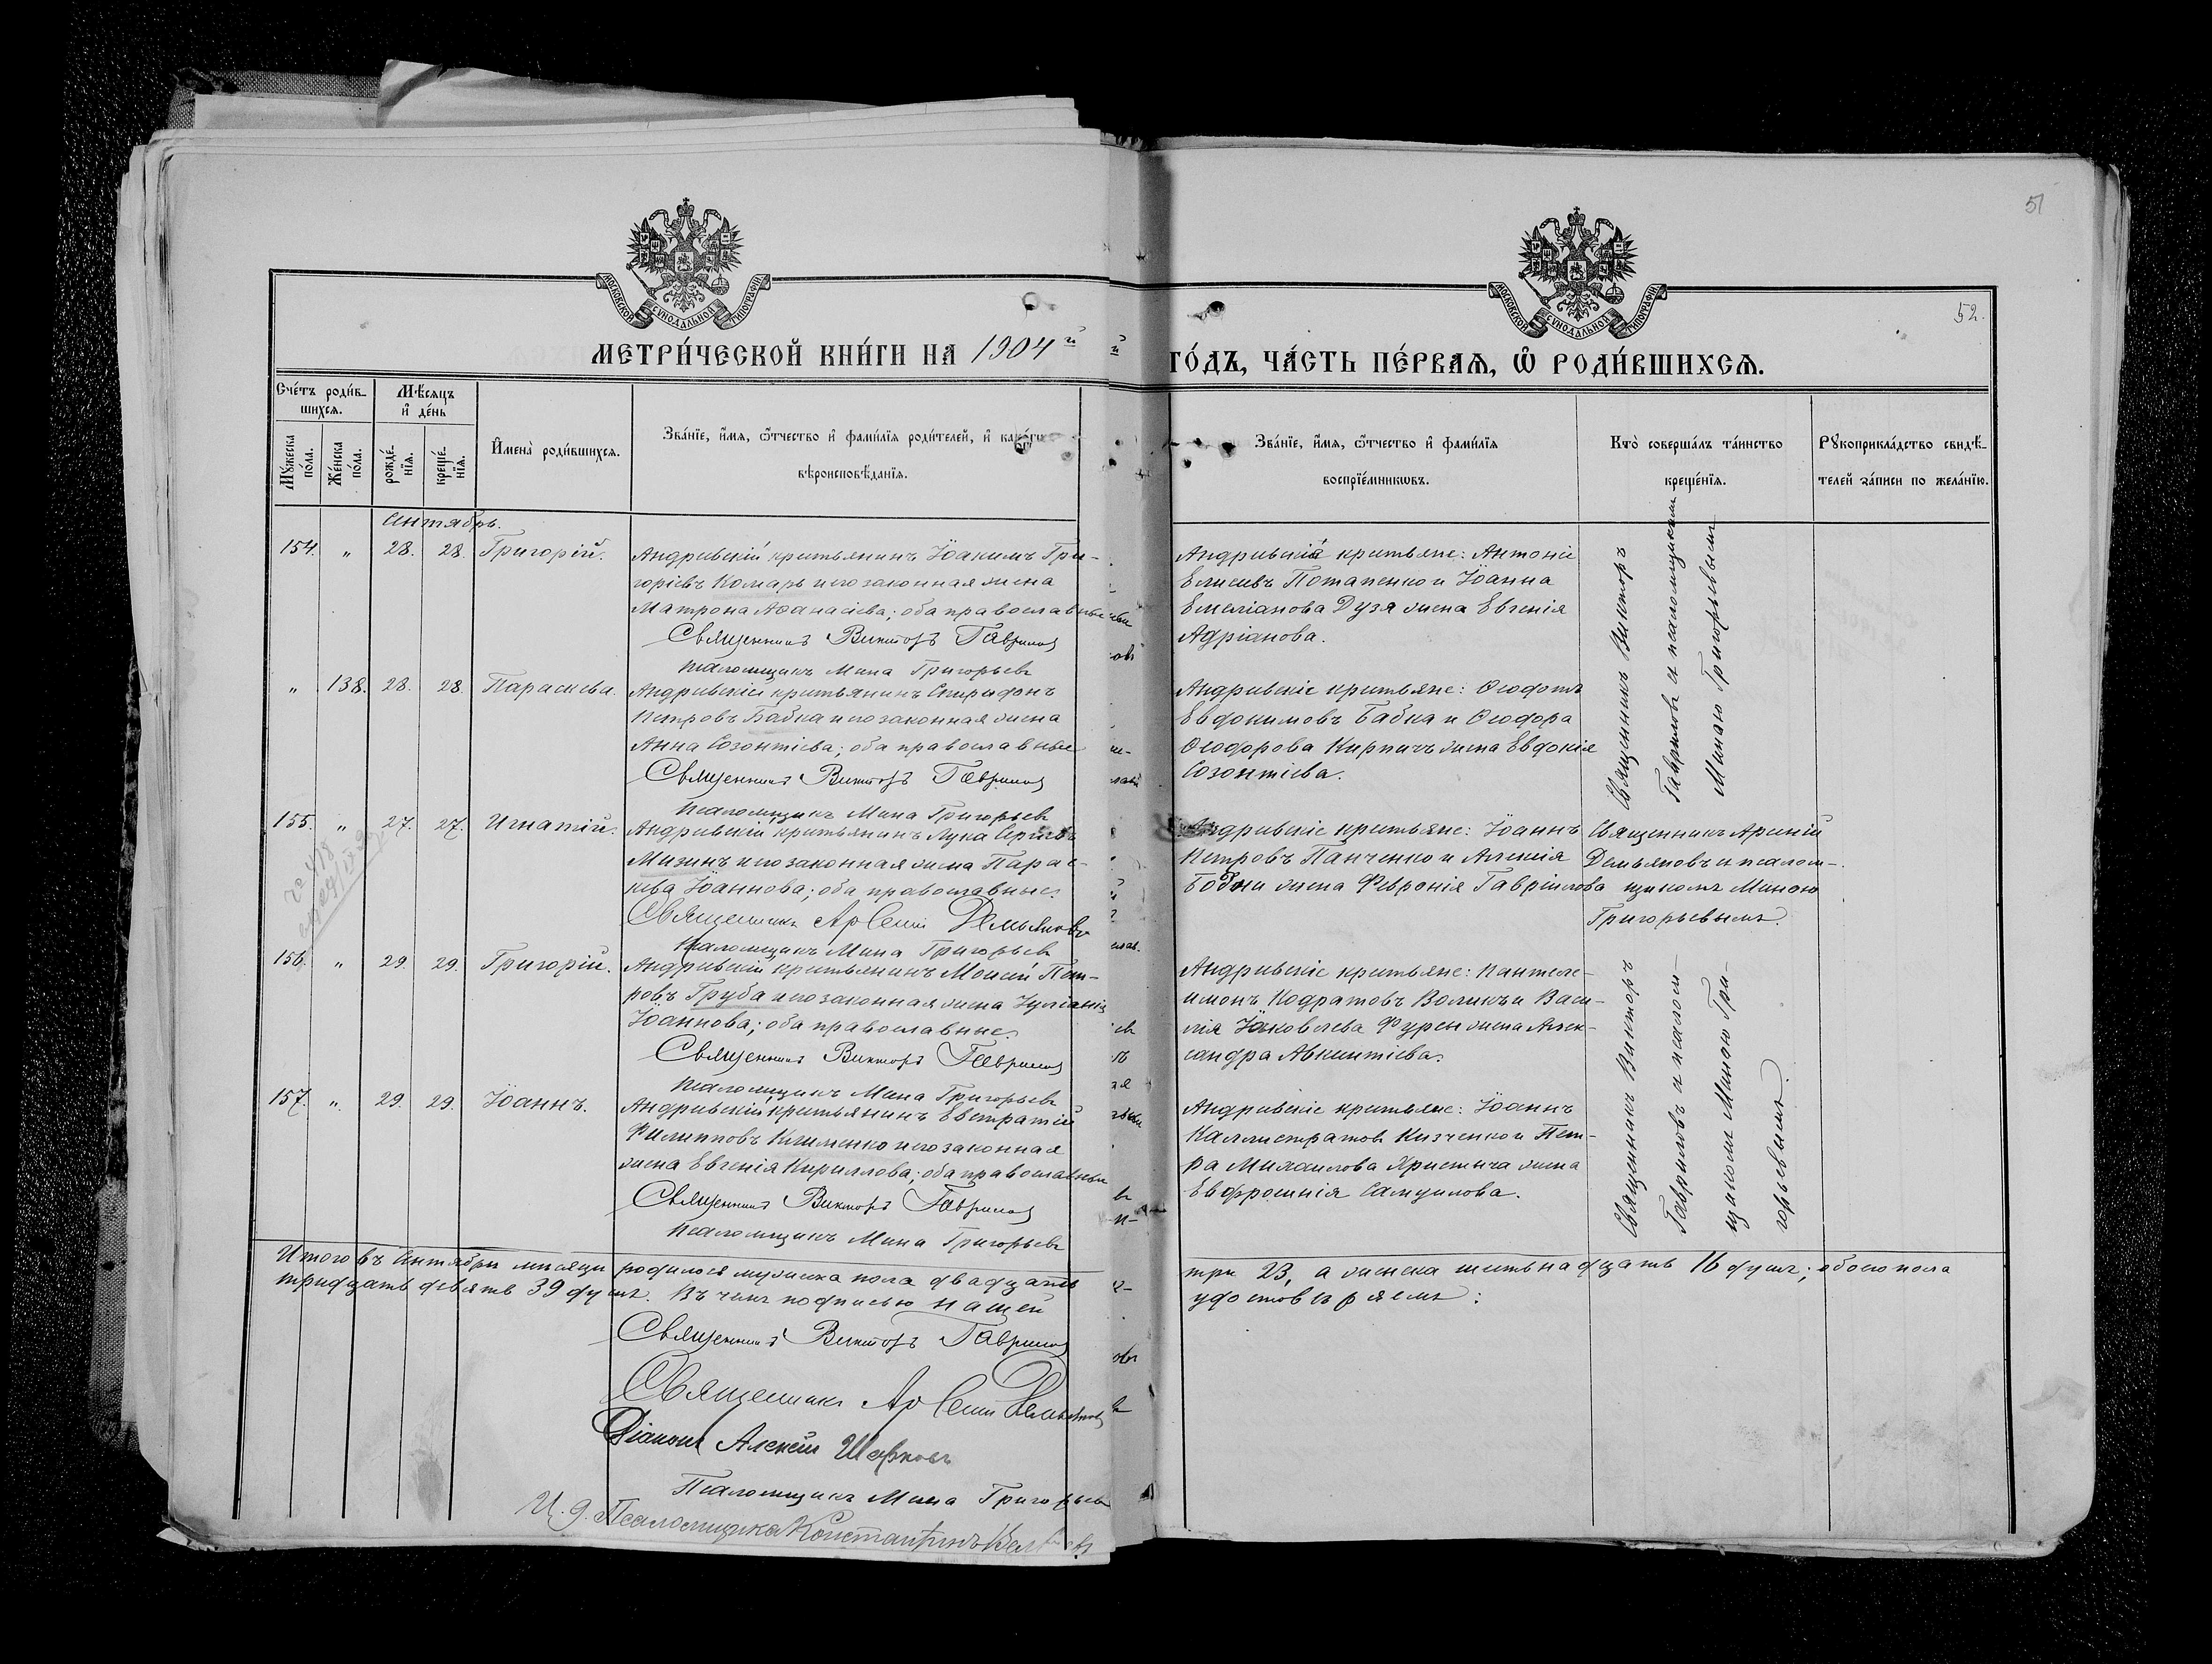 51
52.
МОСКОВСКОЙ СѴНОДАЛЬНОЙ ТИПОГРАФІИ
МОСКОВСКОЙ СѴНОДАЛЬНОЙ ТИПОГРАФІИ
МЕТРИ́ЧЕСКОЙ КНИ́ГИ НА 1904й
ГО́ДЪ, ЧА́СТЬ ПЕ́РВАѦ, Ѽ РОДИ́ВШИХСѦ.
Сче́тъ роди́в-
шихсѧ.
Мѣ́сѧцъ
и҆ де́нь
Мꙋ́жеска
по́ла.
Же́нска
по́ла.
рожде́-
нїѧ.
креще́-
нїѧ.
И҆мена̀ роди́вшихсѧ.
Зва́нїе, и҆́мѧ, ѻ҆́тчество и҆ фами́лїѧ роди́телей, и҆ како́гѡ
вѣроисповѣ́данїѧ.
Зва́нїе, и҆́мѧ, ѻ҆́тчество и҆ фами́лїѧ
воспрїе́мникѡвъ.
Кто̀ соверша́лъ та́инство
креще́нїѧ.
Рꙋкоприкла́дство свидѣ́-
телей за́писи по жела́нїю.
Сентябрь.
154. " 28. 28. Григорій.
Андреевскій крестьянинъ Іоакимъ Гри-
горіевъ Комарь и его законная жена
Матрона Аѳанасіева; оба православные
Священникъ Викторъ Гаврилов
Псаломщикъ Мина Григорьев
Андреевскіе крестьяне: Антоній
Елисеевъ Потапенко и Іоанна
Емеліанова Дузя жена Евгенія
Адріанова.
Священникъ Викторъ
Гаврилов и псаломщиком
Миною Григорьевым
" 138. 28. 28. Параскева.
Андреевскій крестьянинъ Спиридонъ
Петровъ Бабка и его законная жена
Анна Созонтіева; оба православные
Священникъ Викторъ Гаврилов
Псаломщикъ Мина Григорьев
Андреевскіе крестьяне: Ѳеодотъ
Евдокимовъ Бабка и Ѳеодора
Ѳеодорова Кирпичъ жена Евдокія
Созонтіева.
155. " 27. 27. Игнатій.
Андреевскій крестьянинъ Лука Сергіевъ
Мизинъ и его законная жена Парас-
кева Іоаннова; оба православные.
Священникъ Арсеній Демьяновъ
Псаломщикъ Мина Григорьев
Андреевскіе крестьяне: Іоаннъ
Петровъ Панченко и Алексія
Бодни жена Февронія Гавріилова
Священникъ Арсеній
Демьяновъ и псалом-
щикомъ Миною
Григорьевымъ.
156. " 29. 29. Григорій.
Андреевскій крестьянинъ Моисей Пет-
ровъ Груба и его законная жена Іуліанія
Іоаннова; оба православные.
Священникъ Викторъ Гаврилов
Псаломщикъ Мина Григорьев
Андреевскіе крестьяне: Пантеле-
имонъ Кодратовъ Воликъ и Васи-
лія Іаковлева Фурсы жена Алек-
сандра Авксентіева.
Священникъ Викторъ
Гаврилов и псалом-
щиком Миною Гри-
горьевымъ.
157. " 29. 29. Іоаннъ.
Андреевскій крестьянинъ Евстратій
Филипповъ Клименко и его законная
жена Евгенія Кириллова; оба православные
Священникъ Викторъ Гаврилов
Псаломщикъ Мина Григорьев
Андреевскіе крестьяне: Іоаннъ
Каллистратов и Пет-
ра Михаилова жена
Евфросинія Самуилова.
Итого въ Сентябрѣ мѣсяцѣ родилося мужеска пола двадцать
три 23, а женска шестьнадцать 16 душъ; обоего пола
тридцать девять 39 душъ. Въ чемъ подписью нашей
удостовѣряемъ:
Священникъ Викторъ Гаврилов
Священникъ Арсеній Демьяновъ
Діаконъ Алексій
Псаломщикъ Мина Григорьев
И. д. Псаломщика Константинъ